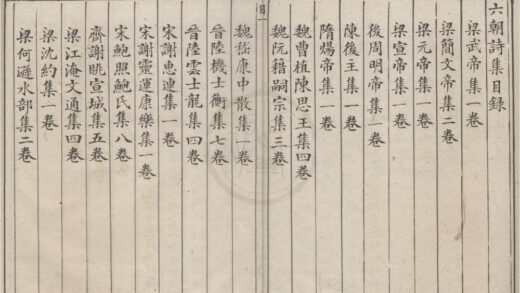 六朝詩集目錄
梁武帝集一卷
梁簡文帝集二卷
梁元帝集一卷
梁宣帝集一卷
後周明帝集一卷
陳後主集一卷
隋煬帝集一卷
魏曹植陳思王集四卷
魏阮籍嗣宗集三卷
目
一
魏嵇康中散集一卷
晉陸機士衡集七卷
晉陸雲士龍集四卷
宋謝惠連集一卷
宋謝靈運康樂集一卷
宋鮑照鮑氏集八卷
齊謝眺宣城集五卷
梁江淹文通集四卷
梁沈約集一卷
梁何遜水部集二卷